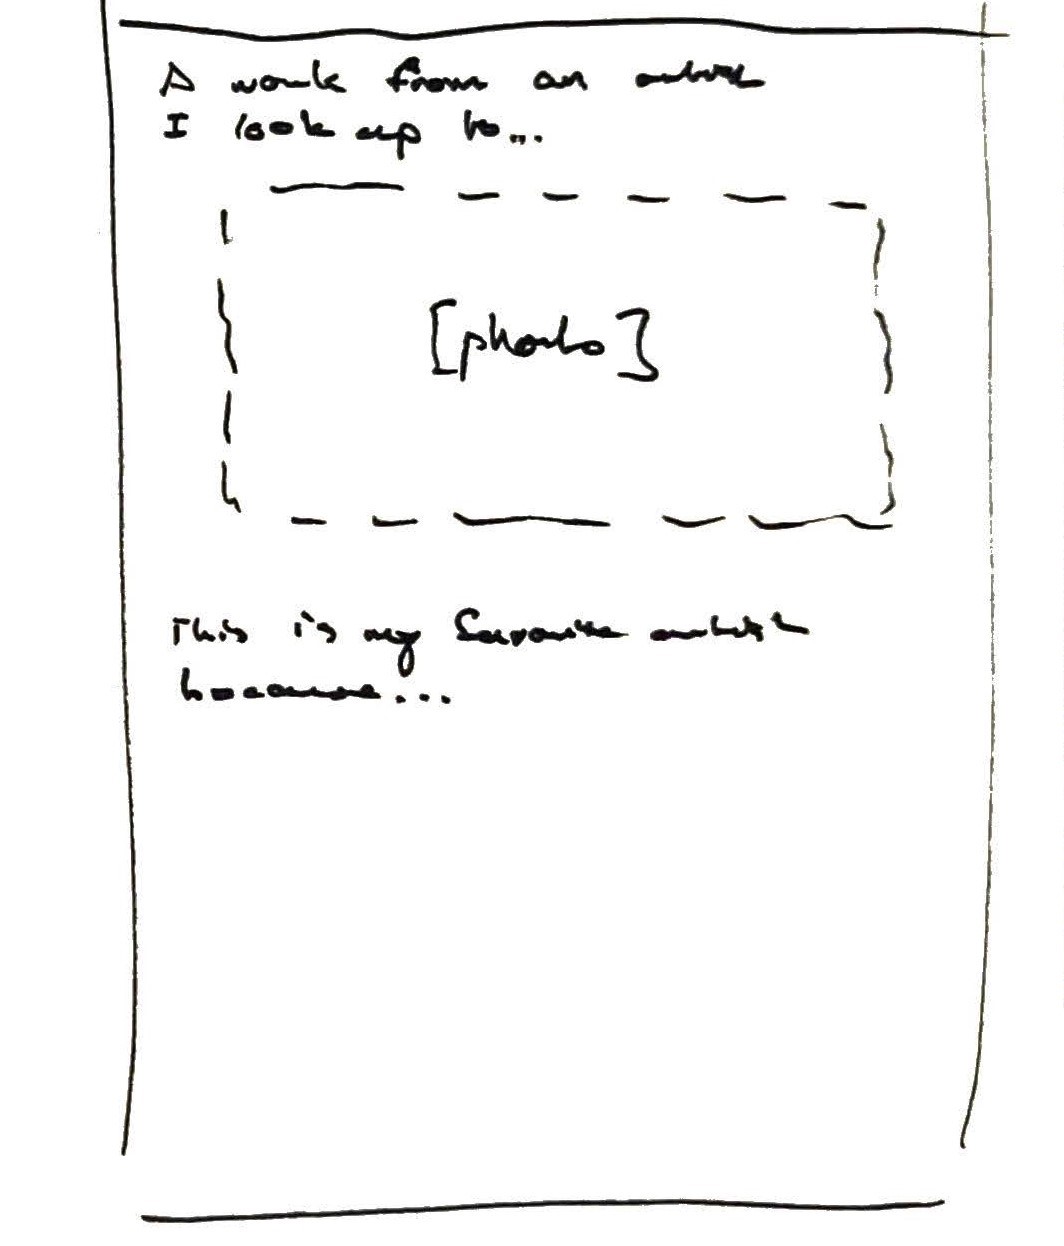 A work from an artist
I look up to...
[photo]
This is my favorite artist
because...